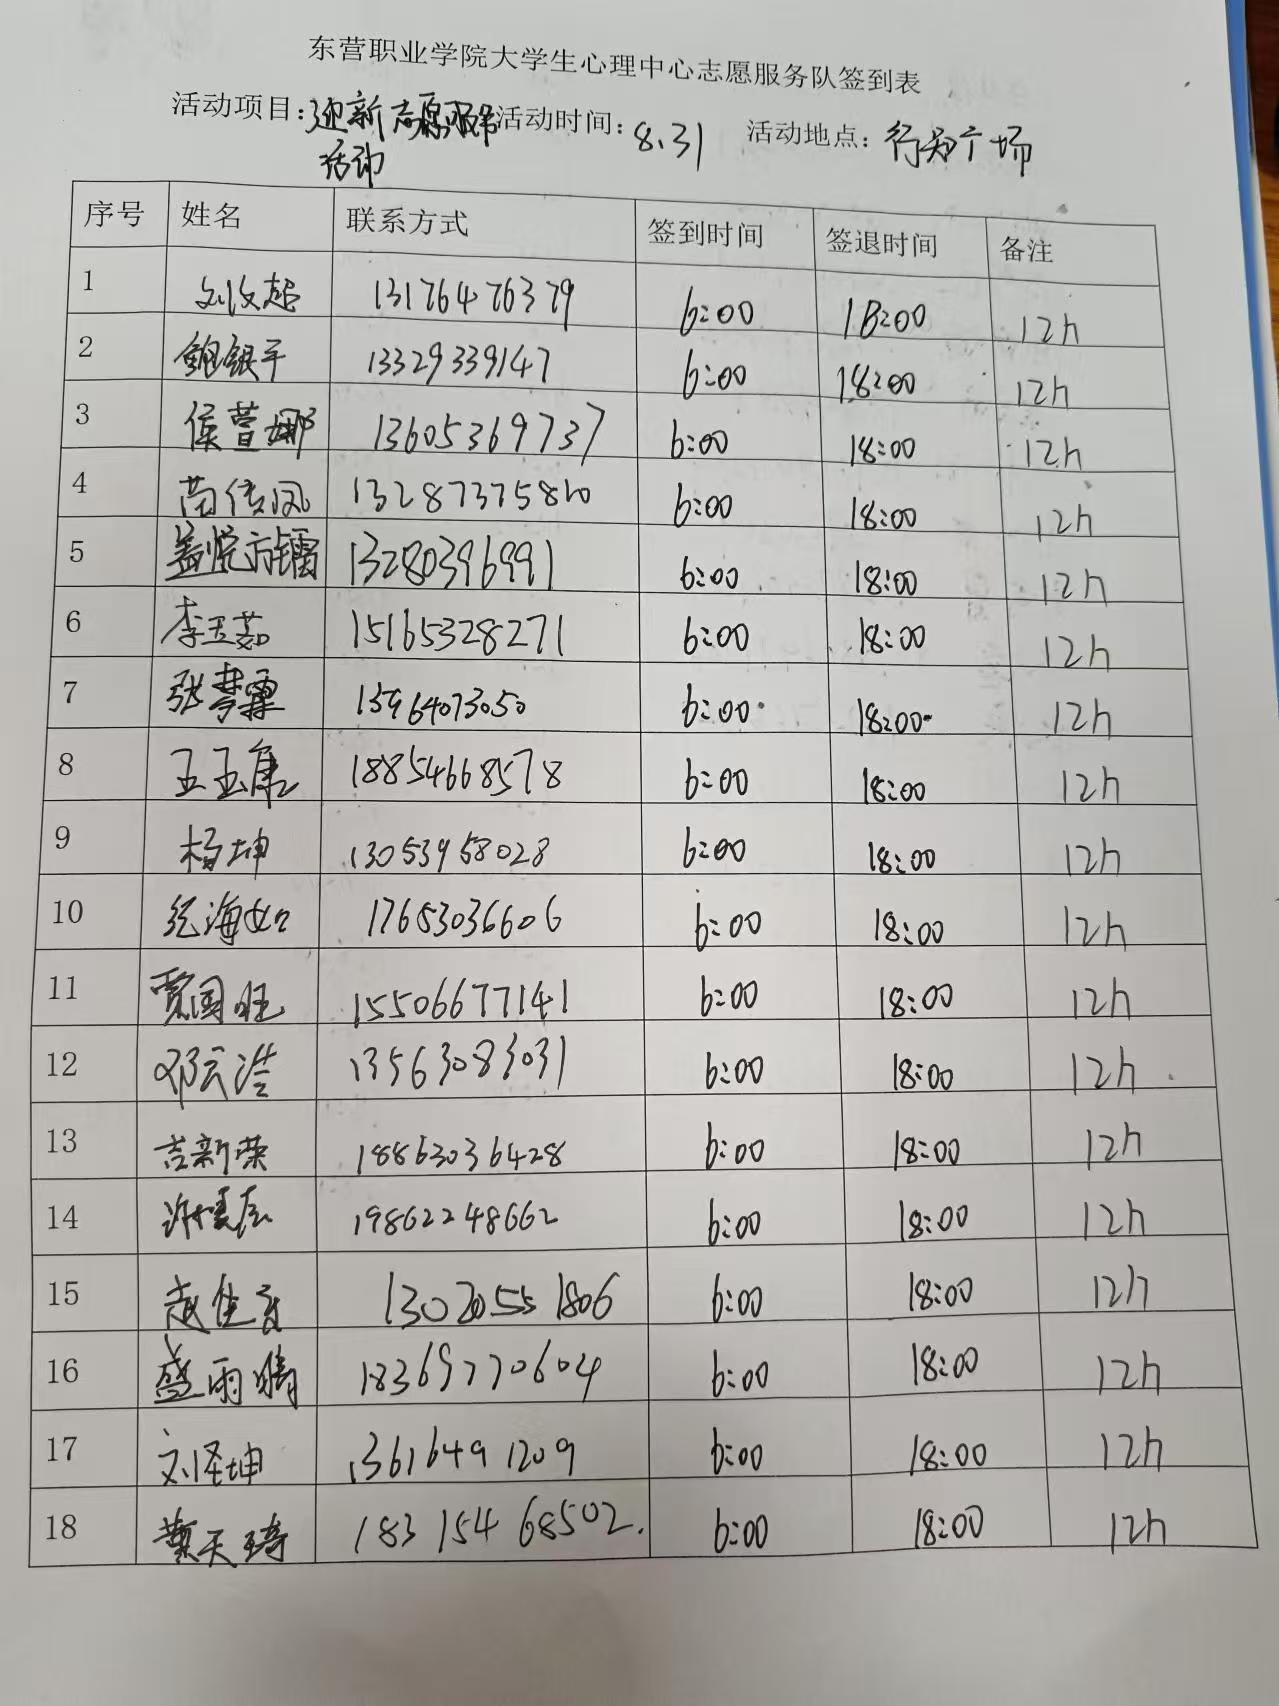 东营职业学院大学生心理中心志愿服务队签到表
活动项目:迎新志愿服务活动 活动时间:8.31 活动地点:行知广场
序号 姓名 联系方式 签到时间 签退时间 备注
1 刘汝超 13176476379 6:00 18:00 12h
2 鲍银平 13329339147 6:00 18:00 12h
3 侯萱娜 13605369737 6:00 18:00 12h
4 苗传凤 6:00 18:00 12h
5 盖悦方镭 13280396991 6:00 18:00 12h
6 李玉茹 15165328271 6:00 18:00 12h
7 张梦霖 13964073050 6:00 18:00 12h
8 王玉集 18854668578 6:00 18:00 12h
9 杨坤 13053958028 6:00 18:00 12h
10 纪海如 17653036606 6:00 18:00 12h
11 贾国旺 15506677141 6:00 18:00 12h
12 邓云浩 13563083031 6:00 18:00 12h
13 吉新荣 18863036428 6:00 18:00 12h
14 19862248662 6:00 18:00 12h
15 赵佳 6:00 18:00 12h
16 盛雨晴 18369770604 6:00 18:00 12h
17 刘泽坤 13616491209 6:00 18:00 12h
18 天琦 18315468502. 6:00 18:00 12h